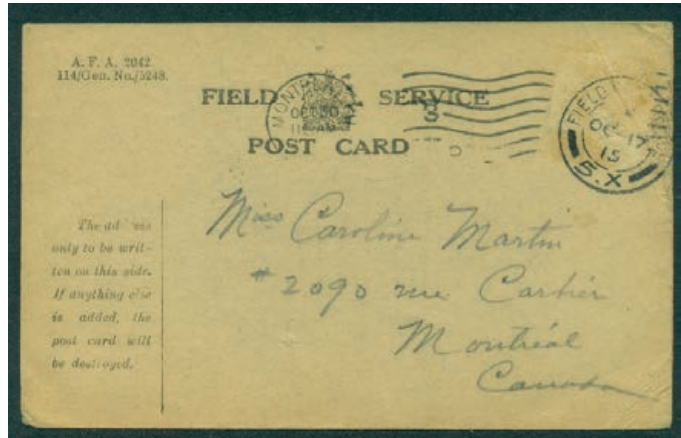 A. F. A. 2042
114/Gen. No./5248.
FIELD SERVICE
POST CARD
MONTREAL
OCT 30
3
FIELD
OC 17
15
5.X
The address
only to be writ-
ten on this side.
If anything else
is added, the
post card will
be destroyed.
Miss Caroline Martin
# 2090 rue Cartier
Montréal
Canada